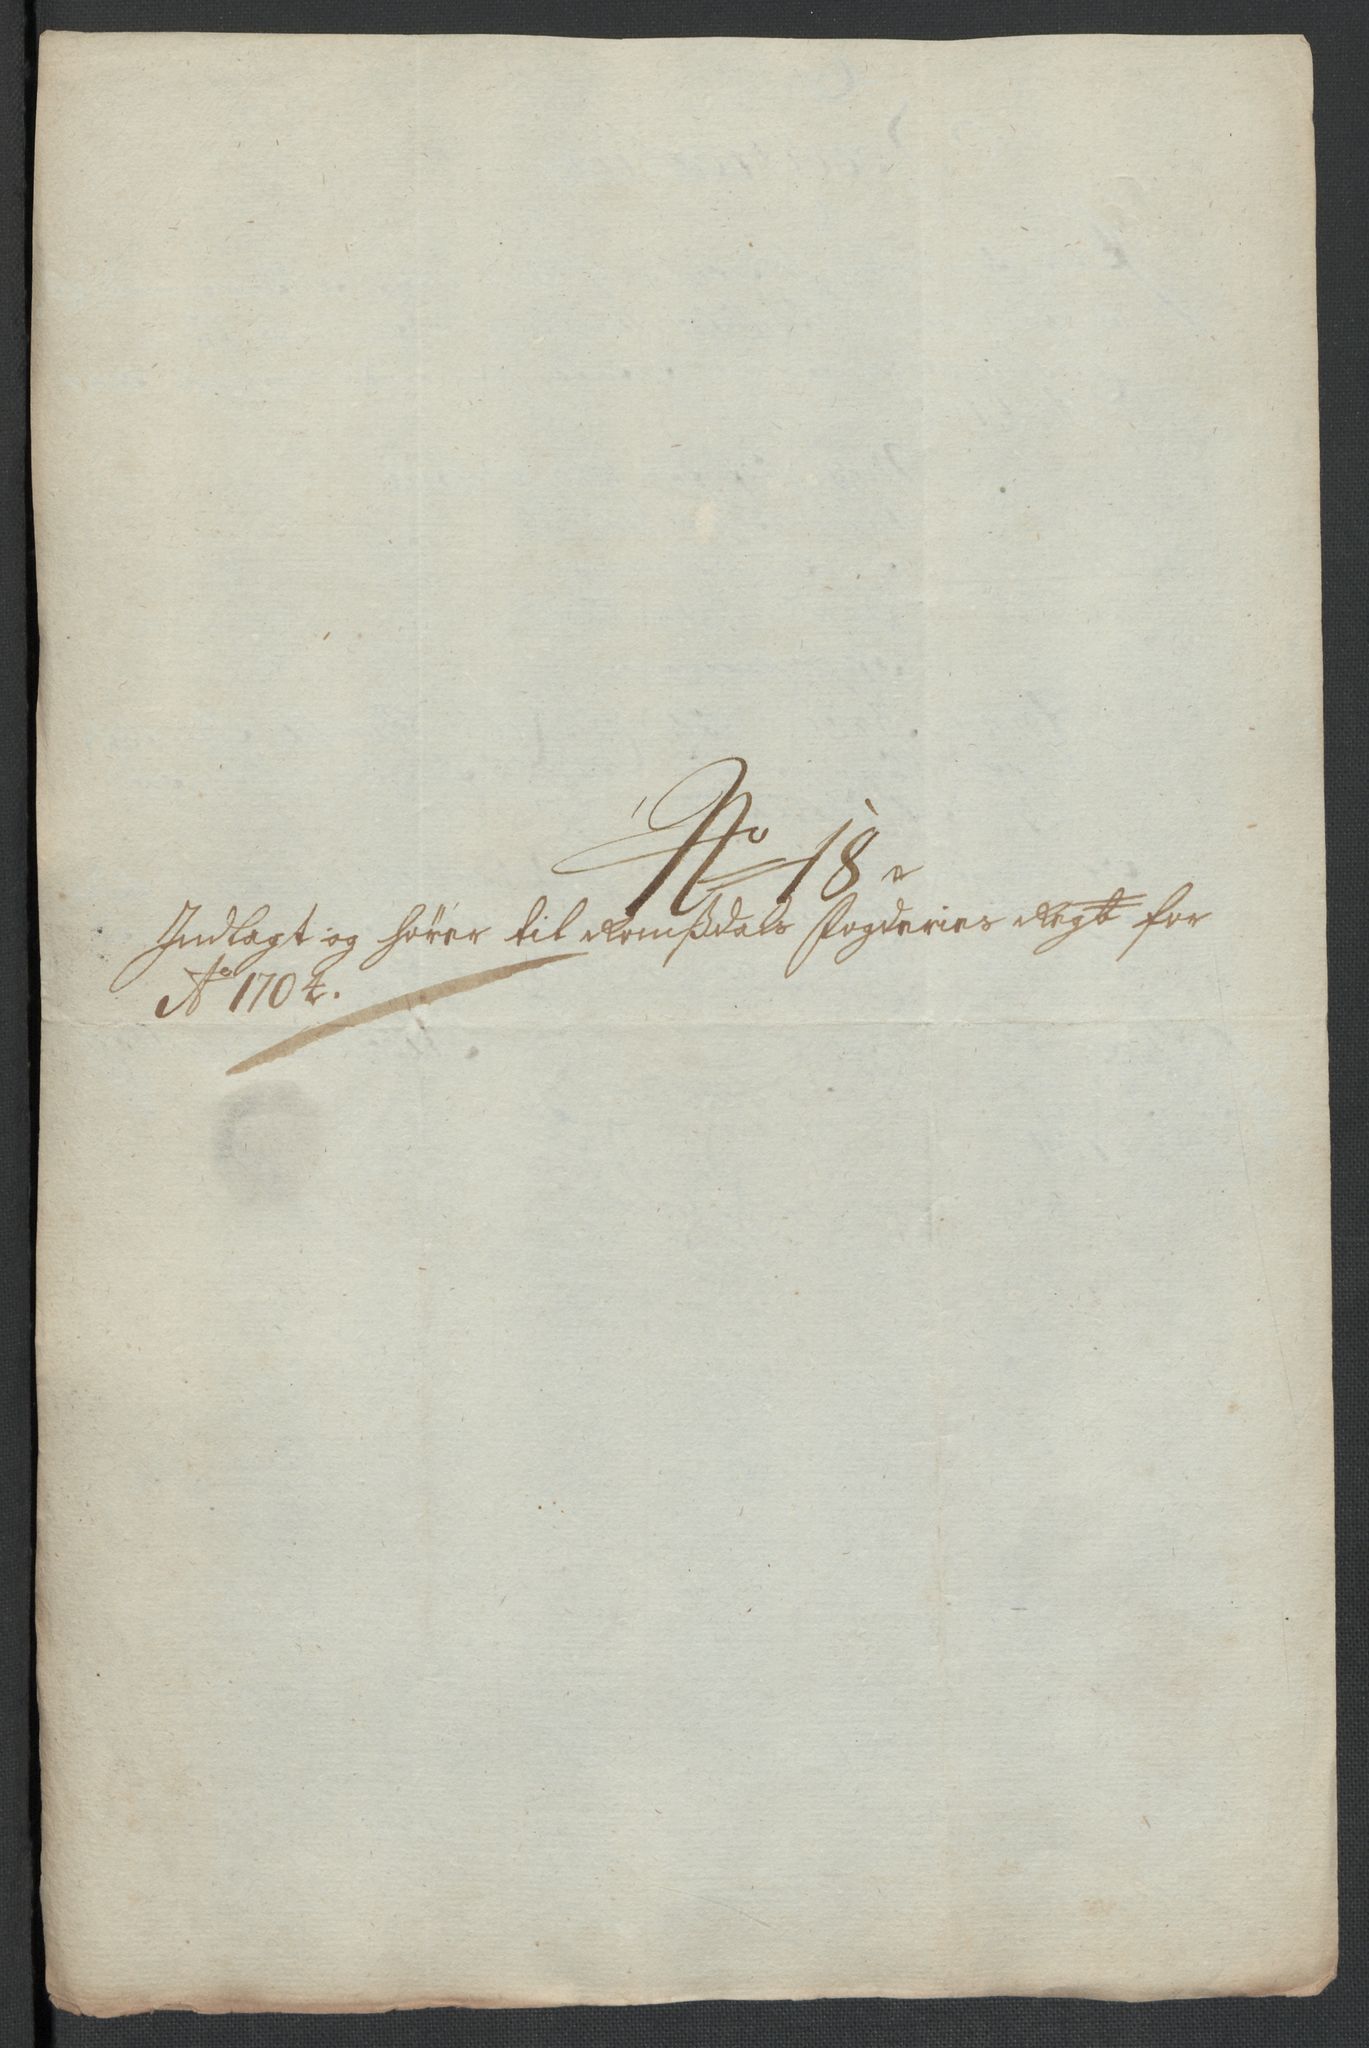 No 18
Indlagt og hører til Romßdals Fogderies Regb for
Ao 1704.